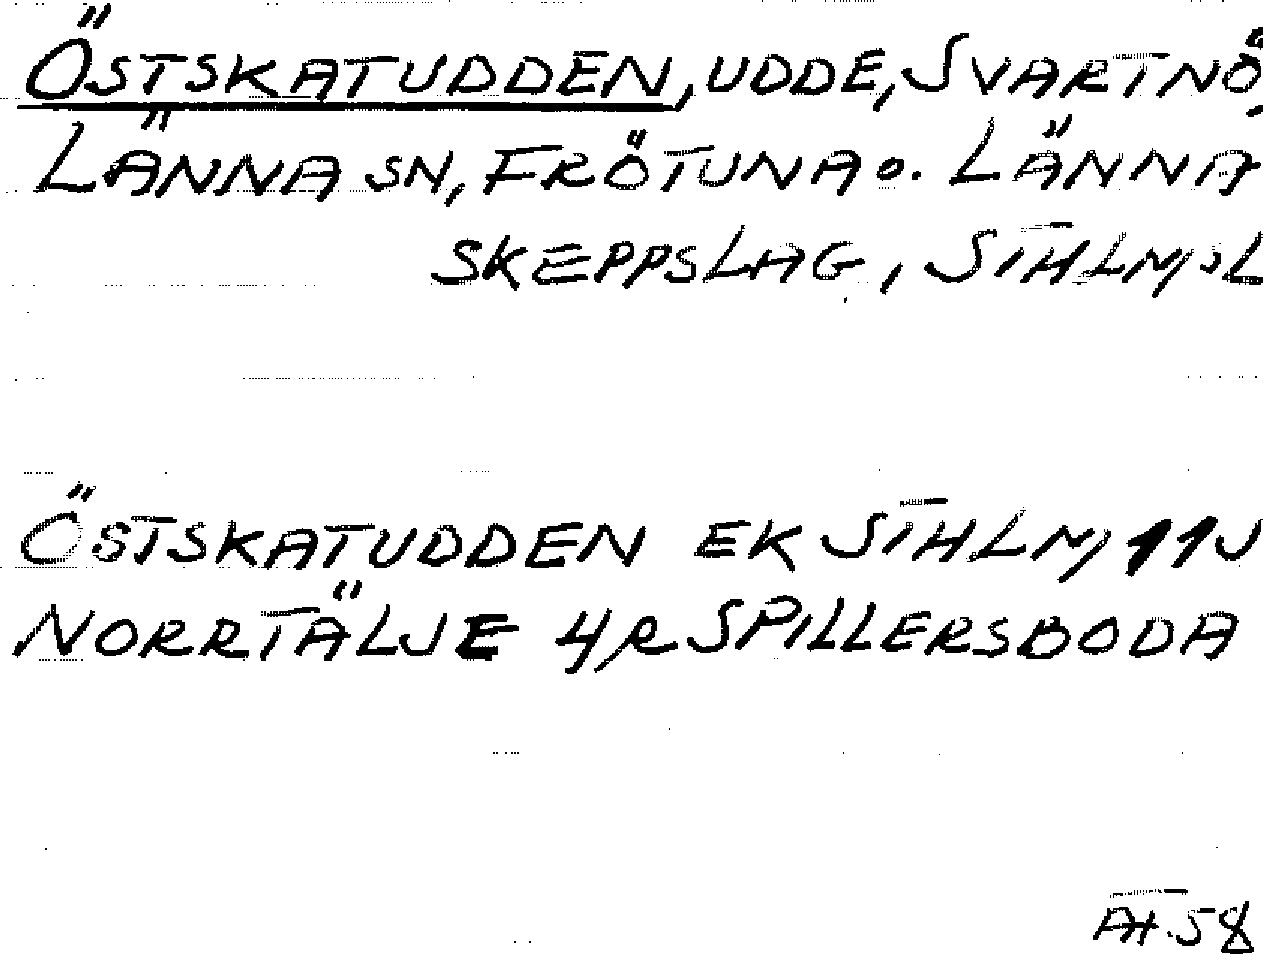 ÖSTSKATUDDEN, UDDE, SVARTNÖ,
LÄNNA SN, FRÖTUNA O. LÄNNA
SKEPPSLAG, STHLMS L
ÖSTSKATUDDEN EK STHLM 11J
NORRTÄLJE 4 R SPILLERSBODA
58